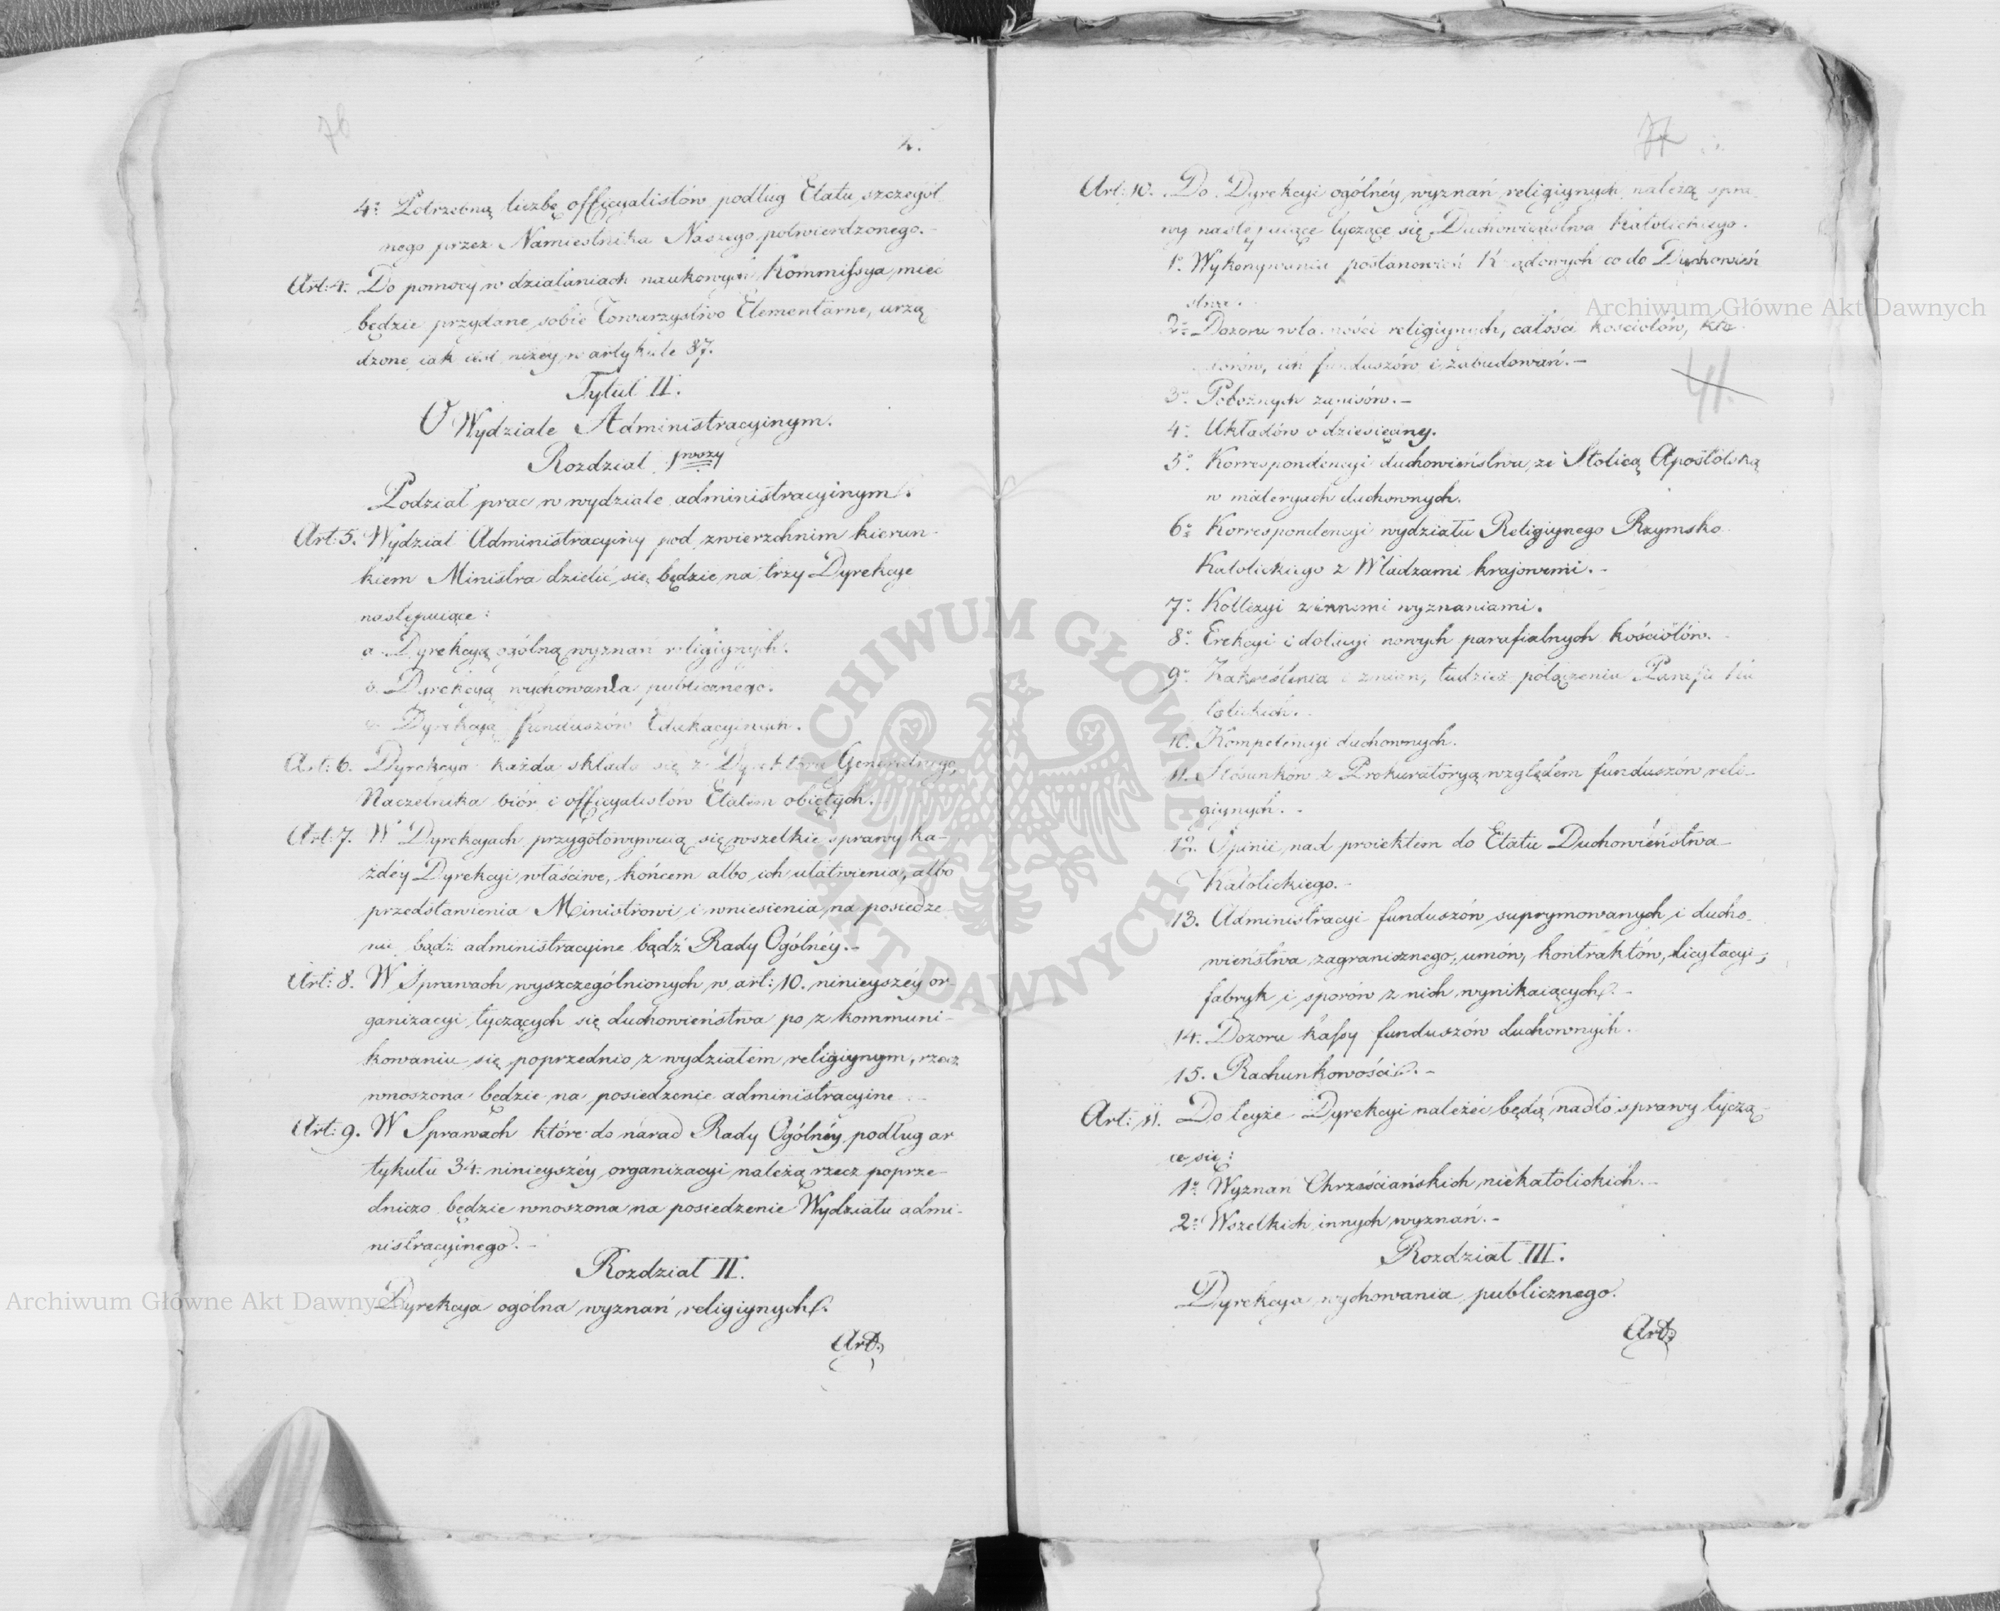 76
2.
4º Potrzebną liczbę officyalistów podług Etatu szczegól
nego przez Namiestnika Naszego potwierdzonego.-
Art: 4. Do pomocy w działaniach naukowych Kommissya mieć
będzie przydane sobie Towarzystwo Elementarne, urzą
dzone iak iest niżey w artykule 87.
Tytuł II.
O Wydziale Administracyinym.
Rozdział prwszy
Podział prac w wydziale administracyinym.
Art: 5. Wydział Administracyiny pod zwierzchnim kierun-
kiem Ministra dzielić się będzie na trzy Dyrekcye
następuiące:
a. Dyrekcyą ogólną wyznań religiynych.
b. Dyrekcyą wychowania publicznego.
c. Dyrekcyą funduszów Edukacyinych.
Art: 6. Dyrekcya każda składa się z Dyrektora Generalnego,
Naczelnika biór i officyalistów Etatem obiętych.
Art: 7. W Dyrekcyach przygotowywuią się wszelkie sprawy ka-
żdéy Dyrekcyi właściwe, końcem albo ich ułatwienia, albo
przedstawienia Ministrowi i wniesienia na posiedze-
nie bądź administracyine bądź Rady Ogólnéy.-
Art: 8. W Sprawach wyszczególnionych w art: 10. ninieyszéy or-
ganizacyi tyczących się duchowieństwa po zkommuni-
kowaniu się poprzednio z wydziałem religiynym, rzecz
wnoszona będzie na posiedzenie administracyine
Art: 9. W Sprawach które do narad Rady Ogólnéy podług ar
tykułu 34. ninieyszéy organizacyi należą rzecz poprze-
dniczo będzie wnoszona na posiedzenie Wydziału admi-
nistracyinego.-
Rozdział II.
Dyrekcya ogólna wyznań religiynych.
Art:
77
Art: 10. Do Dyrekcyi ogólnéy wyznań religiynych należą spra
wy następuiące tyczące się Duchowieństwa Katolickiego.
1º Wykonywania postanowień Rządowych co do Duchowień
stwa.
2º Dozoru własności religiynych, całości kościołów, kla
sztorów, ich funduszów i zabudowań.-
41.
3º Pobożnych zapisów.-
4º Układów o dziesięciny.
5º Korrespondencyi duchowieństwa ze Stolicą Apostolską
w materyach duchownych.
6º Korrespondencyi wydziału Religiynego Rzymsko
Katolickiego z Władzami krajowemi.-
7º Kollizyi z innemi wyznaniami.
8º Erekcyi i dotacyi nowych parafialnych kościołów.-
9º Zakreślenia i zmian, tudzież połączenia Parafii Ka
tolickich.
10. Kompetencyi duchownych.
11. Stosunków z Prokuratoryą względem funduszów reli-
giynych.-
12. Opinii nad proiektem do Etatu Duchowieństwa
Katolickiego.-
13. Administracyi funduszów suprymowanych i ducho-
wieństwa zagranicznego, umów, kontraktów, licytacyi,
fabryk i sporów z nich wynikaiących.-
14. Dozoru kassy funduszów duchownych.
15. Rachunkowości.-
Art: 11. Do teyże Dyrekcyi należéć będą nadto sprawy tyczą-
ce się:
1º Wyznań Chrześciańskich niekatolickich.-
2º Wszelkich innych wyznań.-
Rozdział III.
Dyrekcya wychowania publicznego.
Art:
Archiwum Główne Akt Dawnych
Archiwum Główne Akt Dawnych
ARCHIWUM GŁÓWNE AKT DAWNYCH